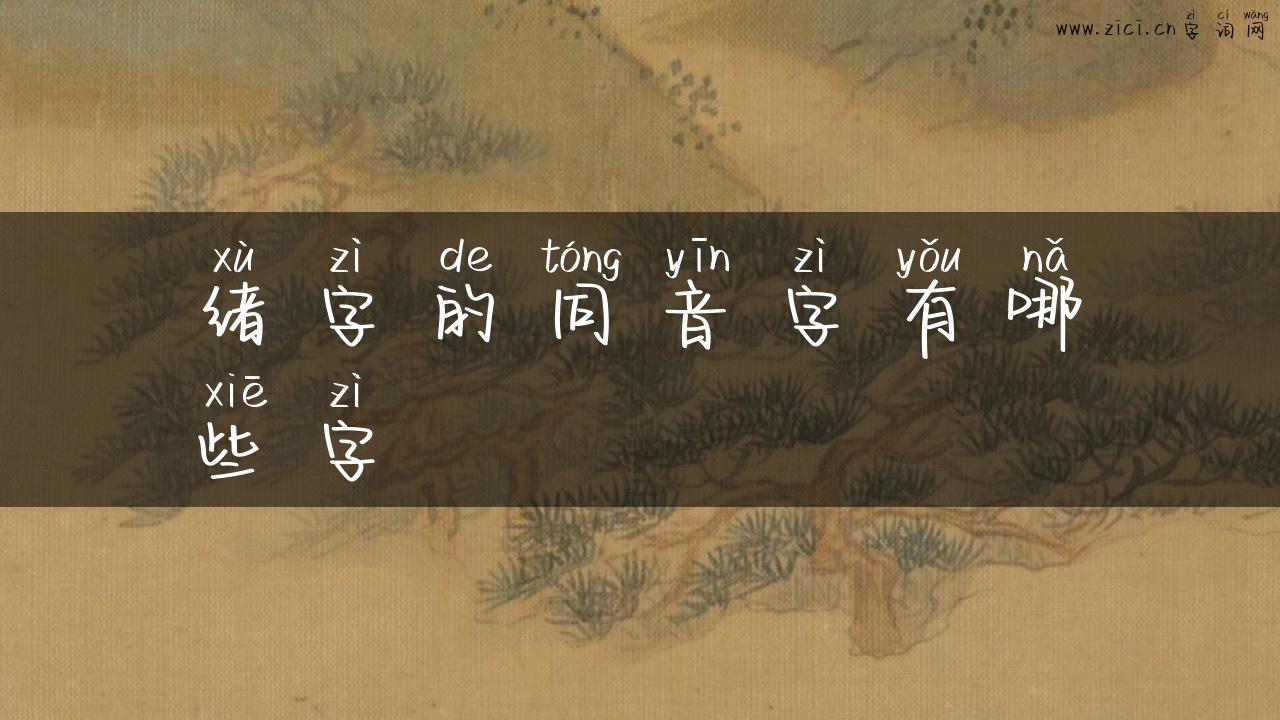 zì cí wǎng
www.zici.cn 字 词 网
xù zì de tóng yīn zì yǒu nǎ
绪 字 的 同 音 字 有 哪
xiē zì
些 字